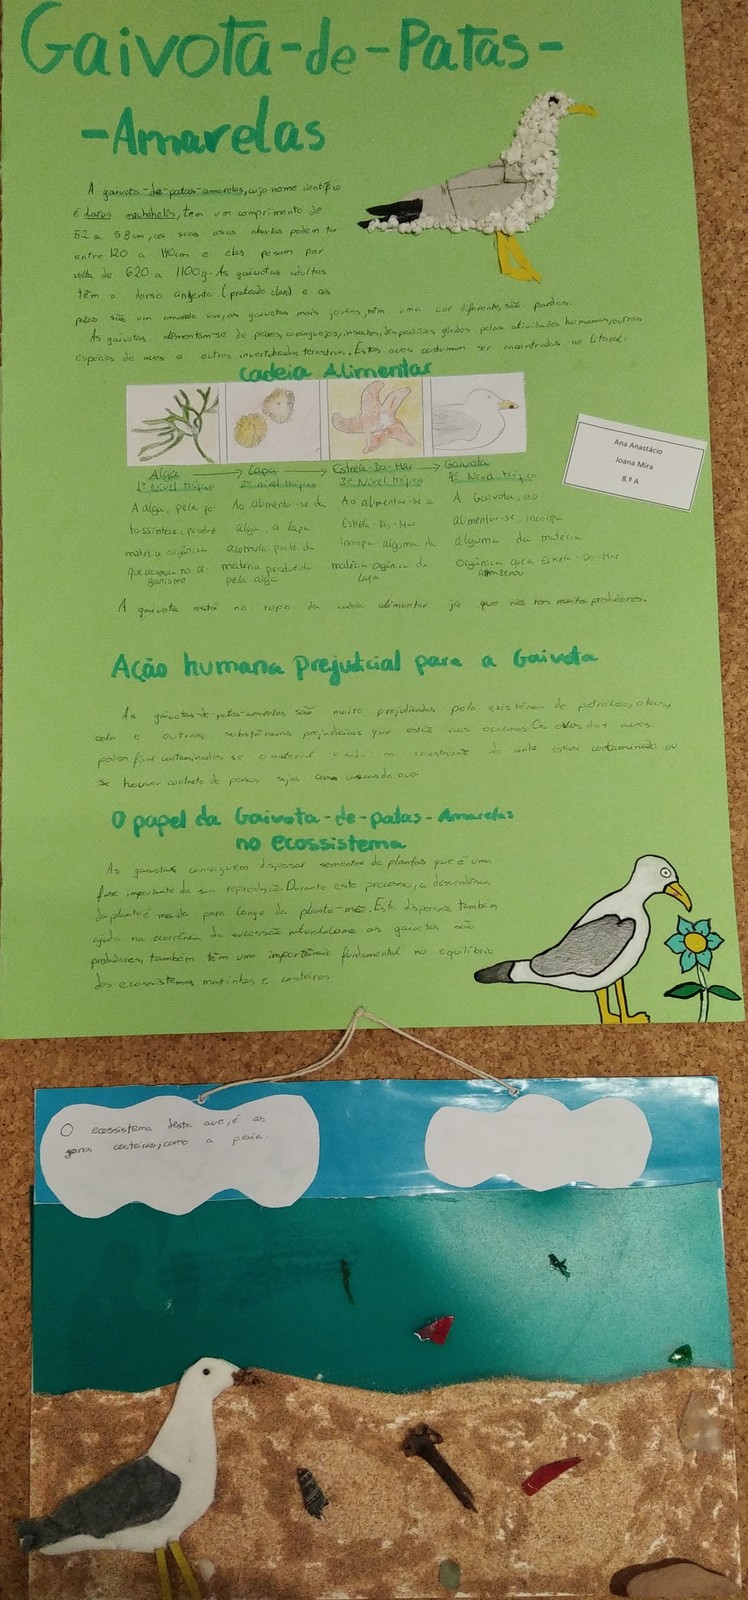 Gaivota-de-Patas-
-Amarelas
A gaivota-de-patas-amarelas, cujo nome científico
é larus michahelis, tem um comprimento de
52 a 58cm, as suas asas abertas podem ter
entre 120 a 140cm e elas pesam por
volta de 620 a 1100g. As gaivotas adultas
têm o dorso (prateado claro) e as
patas são um amarelo vivo, as gaivotas mais jovens, têm uma cor diferente, são pardos.
As gaivotas alimentam-se de peixes, caranguejos, insectos, desperdícios gerados pelas atividades humanas, outras
espécies de aves e outros invertebrados terrestres. Estas aves costumam ser encontradas no litoral.
Cadeia Alimentar
Alga → Lapa → Estrela-Do-Mar → Gaivota
1º Nível trófico 2º nível trófico 3º Nível trófico 4º Nível trófico
A alga, pela fo- Ao alimentar-se da Ao alimentar-se a A Gaivota, ao
tossíntese, produz alga, a lapa Estrela-Do-Mar alimentar-se, incorpa
matéria orgânica acumula parte da incorpa alguma da alguma da matéria
que acumula no or- matéria produzida matéria orgânica da Orgânica que a Estrela-Do-Mar
ganismo pela alga lapa armazenou
A gaivota está no topo da cadeia alimentar já que não tem muitos predadores.
Ana Anastácio
Joana Mira
8.º A
Ação humana prejudicial para a Gaivota
As gaivotas-de-patas-amarelas são muito prejudicadas pela existência de petróleo, óleos,
cola e outras substâncias prejudiciais que estão nos oceanos. Os ovos das aves
podem ficar contaminados se o material usado na construção do ninho estiver contaminado ou
se houver contacto de penas sujas com a casca do ovo.
O papel da Gaivota-de-patas-Amarelas
no ecossistema
As gaivotas conseguem dispersar sementes de plantas que é uma
fase importante da sua reprodução. Durante este processo, a descendência
da planta é movida para longe da planta-mãe. Esta dispersão também
ajuda na ocorrência da sucessão natural. Como as gaivotas são
predadores, também têm uma importância fundamental no equilíbrio
dos ecossistemas marinhos e costeiros.
O ecossistema desta ave, é as
zonas costeiras, como a praia.